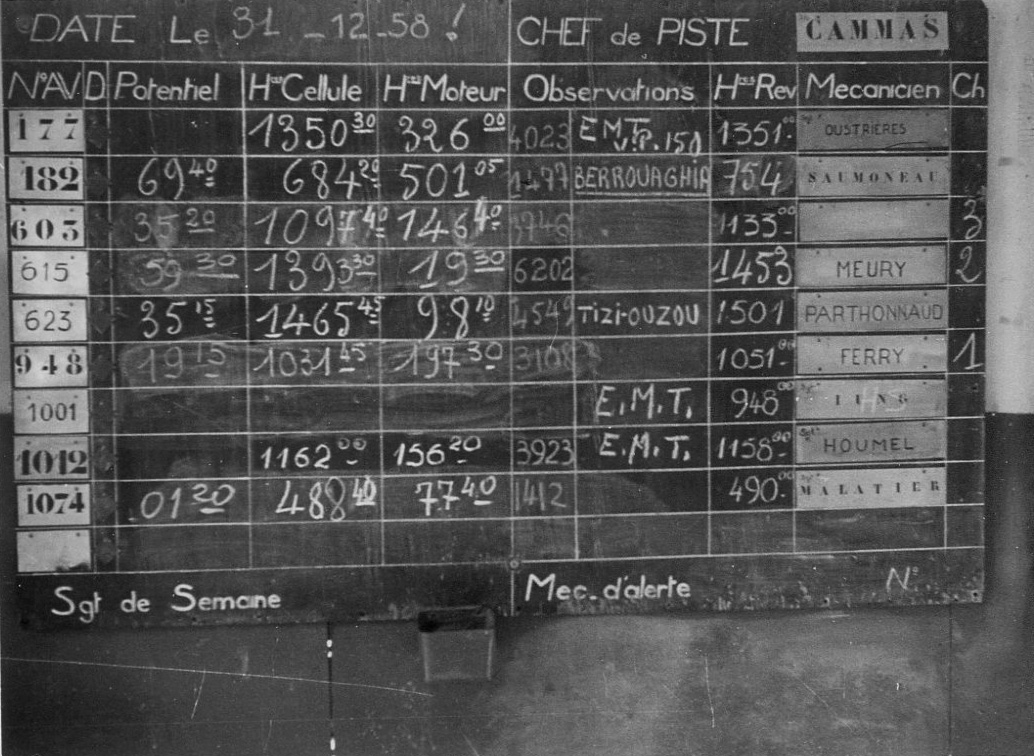 DATE Le 31 _ 12 _ 58 ! CHEF de PISTE CAMMAS
N°AV D Potentiel H^res Cellule H^res Moteur Observations H^res Rev Mecanicien Ch
177 1350 30 326 00 4023 E.M.T. V.P. 150 1351 00 OUSTRIERES
182 69 40 684 20 501 05 1477 BERROUAGHIA 754 SAUMONEAU
603 35 20 1097 40 146 40 3746 1133 00 3
615 59 30 1393 30 19 30 6202 1453 MEURY 2
623 35 15 1465 45 98 10 4549 Tizi-OUZOU 1501 PARTHONNAUD
948 19 15 1031 45 197 30 3108 1051 00 FERRY 1
1001 E.M.T. 948 00
1012 1162 00 156 20 3923 E.M.T. 1158 00 HOUMEL
1074 01 20 488 40 77 40 1412 490 00 MALATIER
Sgt de Semaine Mec. d'alerte N°